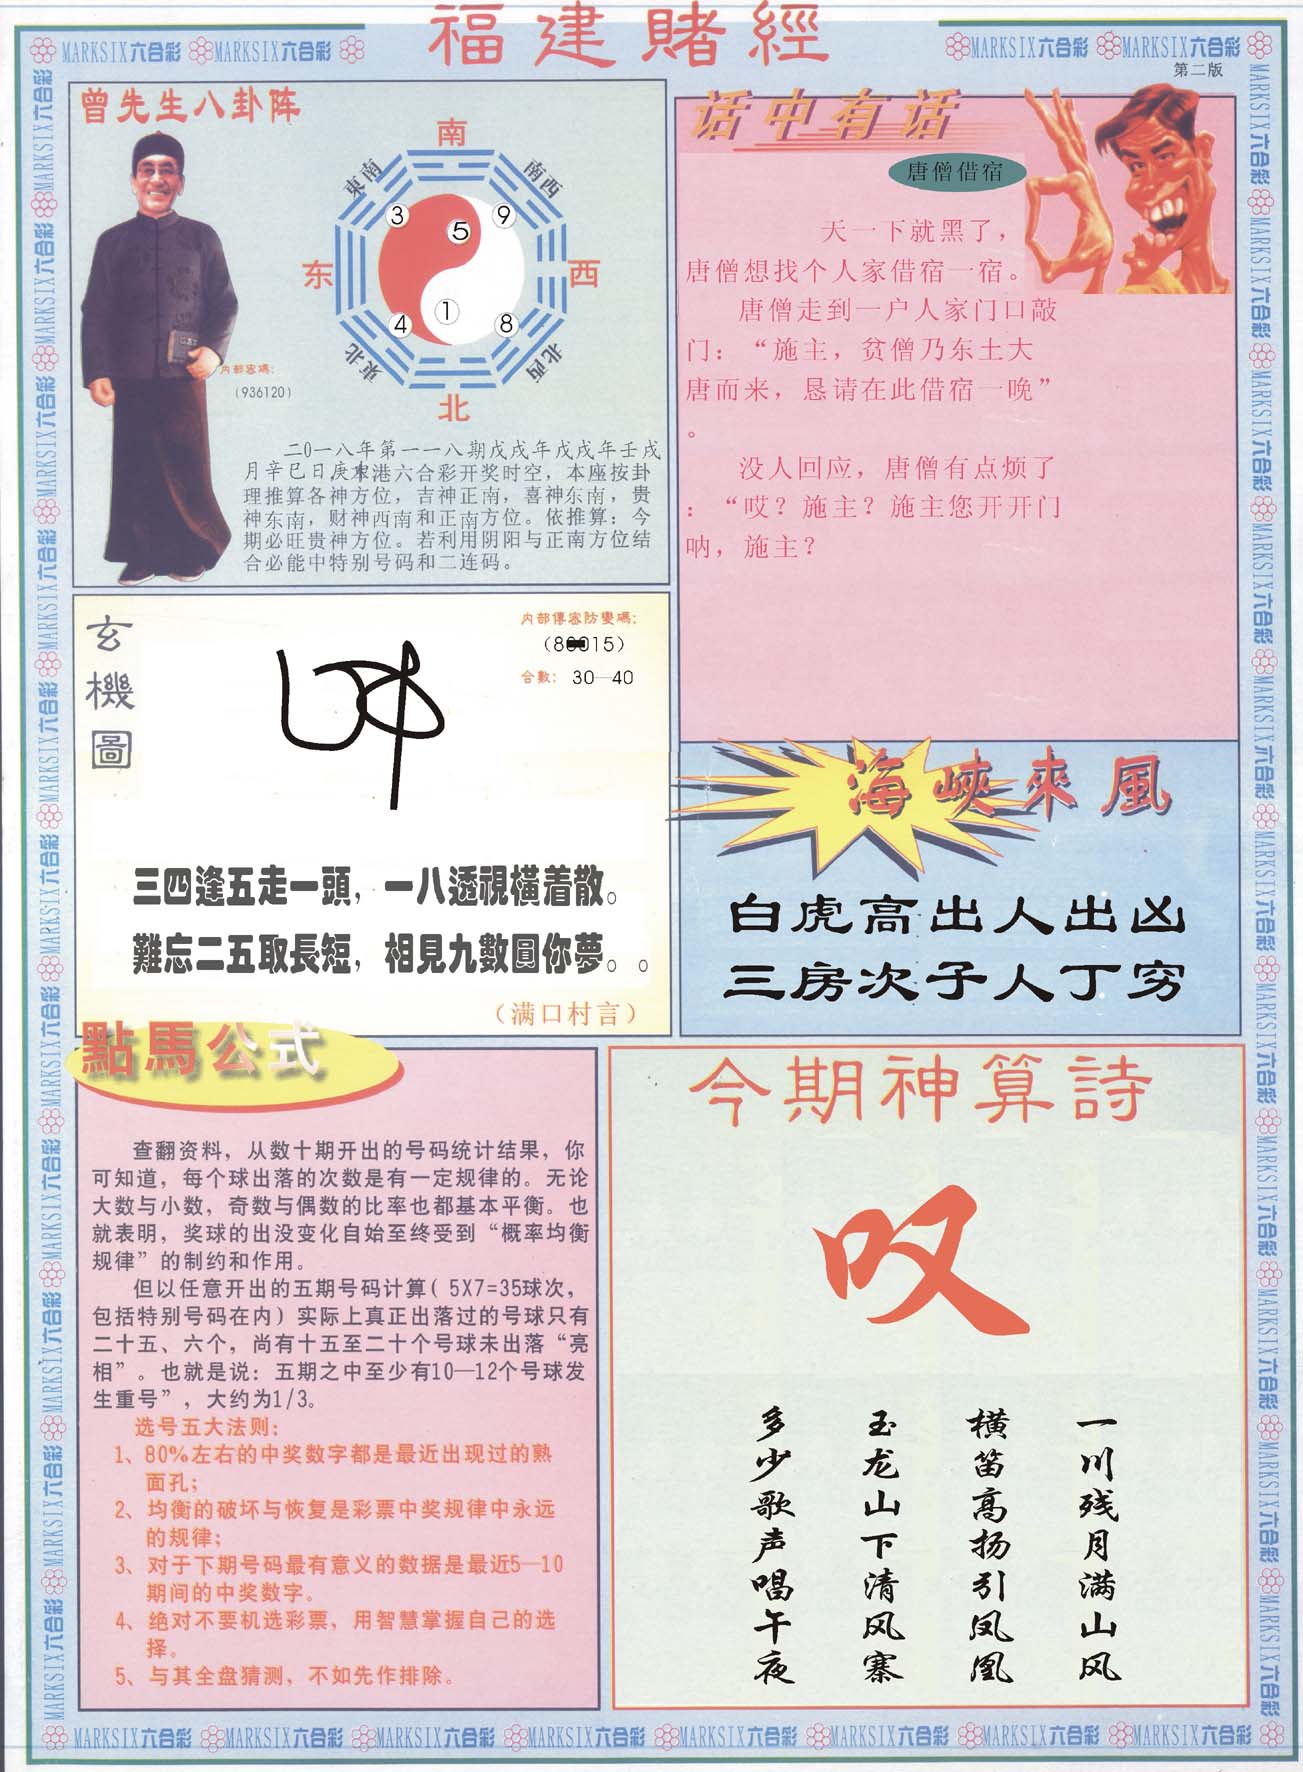 福建賭經
MARKSIX六合彩 MARKSIX六合彩
MARKSIX六合彩 MARKSIX六合彩
第二版
曾先生八卦阵
南
東南
南西
3
9
5
东
西
1
4
8
東北
北西
北
内部密碼:
(936120)
二0一八年第一一八期戊戌年戊戌年壬戌
月辛巳日庚本港六合彩开奖时空，本座按卦
理推算各神方位，吉神正南，喜神东南，贵
神东南，财神西南和正南方位。依推算：今
期必旺贵神方位。若利用阴阳与正南方位结
合必能中特别号码和二连码。
话中有话
唐僧借宿
天一下就黑了，
唐僧想找个人家借宿一宿。
唐僧走到一户人家门口敲
门：“施主，贫僧乃东土大
唐而来，恳请在此借宿一晚”
。
没人回应，唐僧有点烦了
：“哎？施主？施主您开开门
呐，施主？
玄機圖
内部傳密防變碼:
15)
合數: 30—40
三四逢五走一頭，一八透視橫着散。
難忘二五取長短，相見九數圓你夢。。
（满口村言）
海峽來風
白虎高出人出凶
三房次子人丁穷
點馬公式
查翻资料，从数十期开出的号码统计结果，你
可知道，每个球出落的次数是有一定规律的。无论
大数与小数，奇数与偶数的比率也都基本平衡。也
就表明，奖球的出没变化自始至终受到“概率均衡
规律”的制约和作用。
但以任意开出的五期号码计算( 5X7=35球次，
包括特别号码在内）实际上真正出落过的号球只有
二十五、六个，尚有十五至二十个号球未出落“亮
相”。也就是说：五期之中至少有10—12个号球发
生重号”，大约为1/3。
选号五大法则:
1、80%左右的中奖数字都是最近出现过的熟
面孔;
2、均衡的破坏与恢复是彩票中奖规律中永远
的规律;
3、对于下期号码最有意义的数据是最近5—10
期间的中奖数字。
4、绝对不要机选彩票，用智慧掌握自己的选
择。
5、与其全盘猜测，不如先作排除。
今期神算詩
叹
一川残月满山风
横笛高扬引凤凰
玉龙山下清风寨
多少歌声唱午夜
MARKSIX六合彩 MARKSIX六合彩 MARKSIX六合彩 MARKSIX六合彩 MARKSIX六合彩 MARKSIX六合彩 MARKSIX六合彩 MARKSIX六合彩